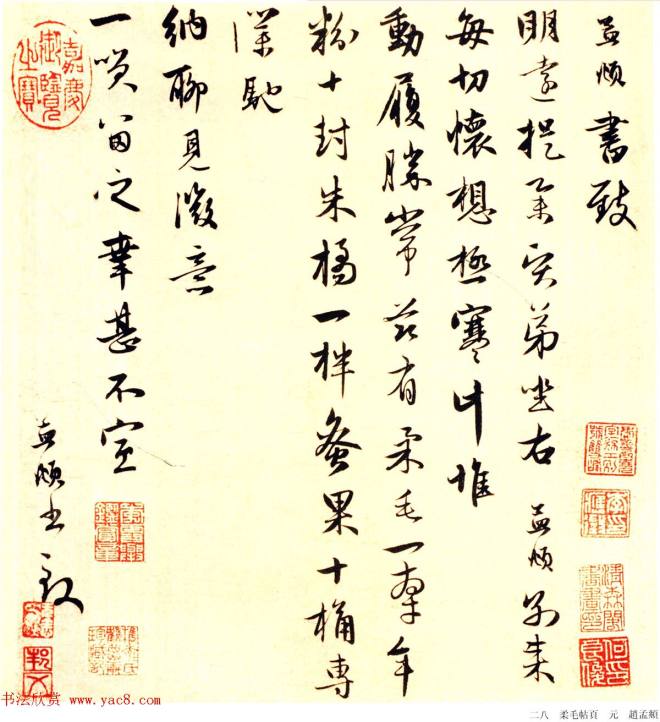 孟頫書致
明遠提舉賓弟坐右孟頫別來
每切懷想極寒計惟
動履勝常茲有柔毛一牽年
粉十封朱橘一柈蚕果十桶專
僕馳
納聊見微意
一笑留之幸甚不宣
孟頫書致
嘉慶御覽之寶
书法欣赏 www.yac8.com
二八 柔毛帖頁 元 趙孟頫